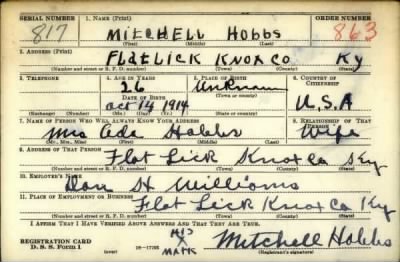 SERIAL NUMBER 1. NAME (Print) ORDER NUMBER
817 MITCHELL HOBBS 863
(First) (Middle) (Last)
2. ADDRESS (Print)
FLATLICK KNOX CO. KY
(Number and street or R. F. D. number) (Town) (County) (State)
3. TELEPHONE 4. AGE IN YEARS 5. PLACE OF BIRTH 6. COUNTRY OF CITIZENSHIP
26 Unknown
DATE OF BIRTH (Town or county)
Oct 14 1914 U.S.A
(Exchange) (Number) (Mo.) (Day) (Yr.) (State or country)
7. NAME OF PERSON WHO WILL ALWAYS KNOW YOUR ADDRESS 8. RELATIONSHIP OF THAT PERSON
Mrs Ada Hobbs Wife
(Mr., Mrs., Miss) (First) (Middle) (Last)
9. ADDRESS OF THAT PERSON
Flat Lick Knox Co Ky
(Number and street or R. F. D. number) (Town) (County) (State)
10. EMPLOYER'S NAME
Don H Williams
11. PLACE OF EMPLOYMENT OR BUSINESS
Flat Lick Knox Co Ky
(Number and street or R. F. D. number) (Town) (County) (State)
I AFFIRM THAT I HAVE VERIFIED ABOVE ANSWERS AND THAT THEY ARE TRUE.
REGISTRATION CARD
D. S. S. Form 1
HIS
X
MARK
Mitchell Hobbs
(Registrant's signature)